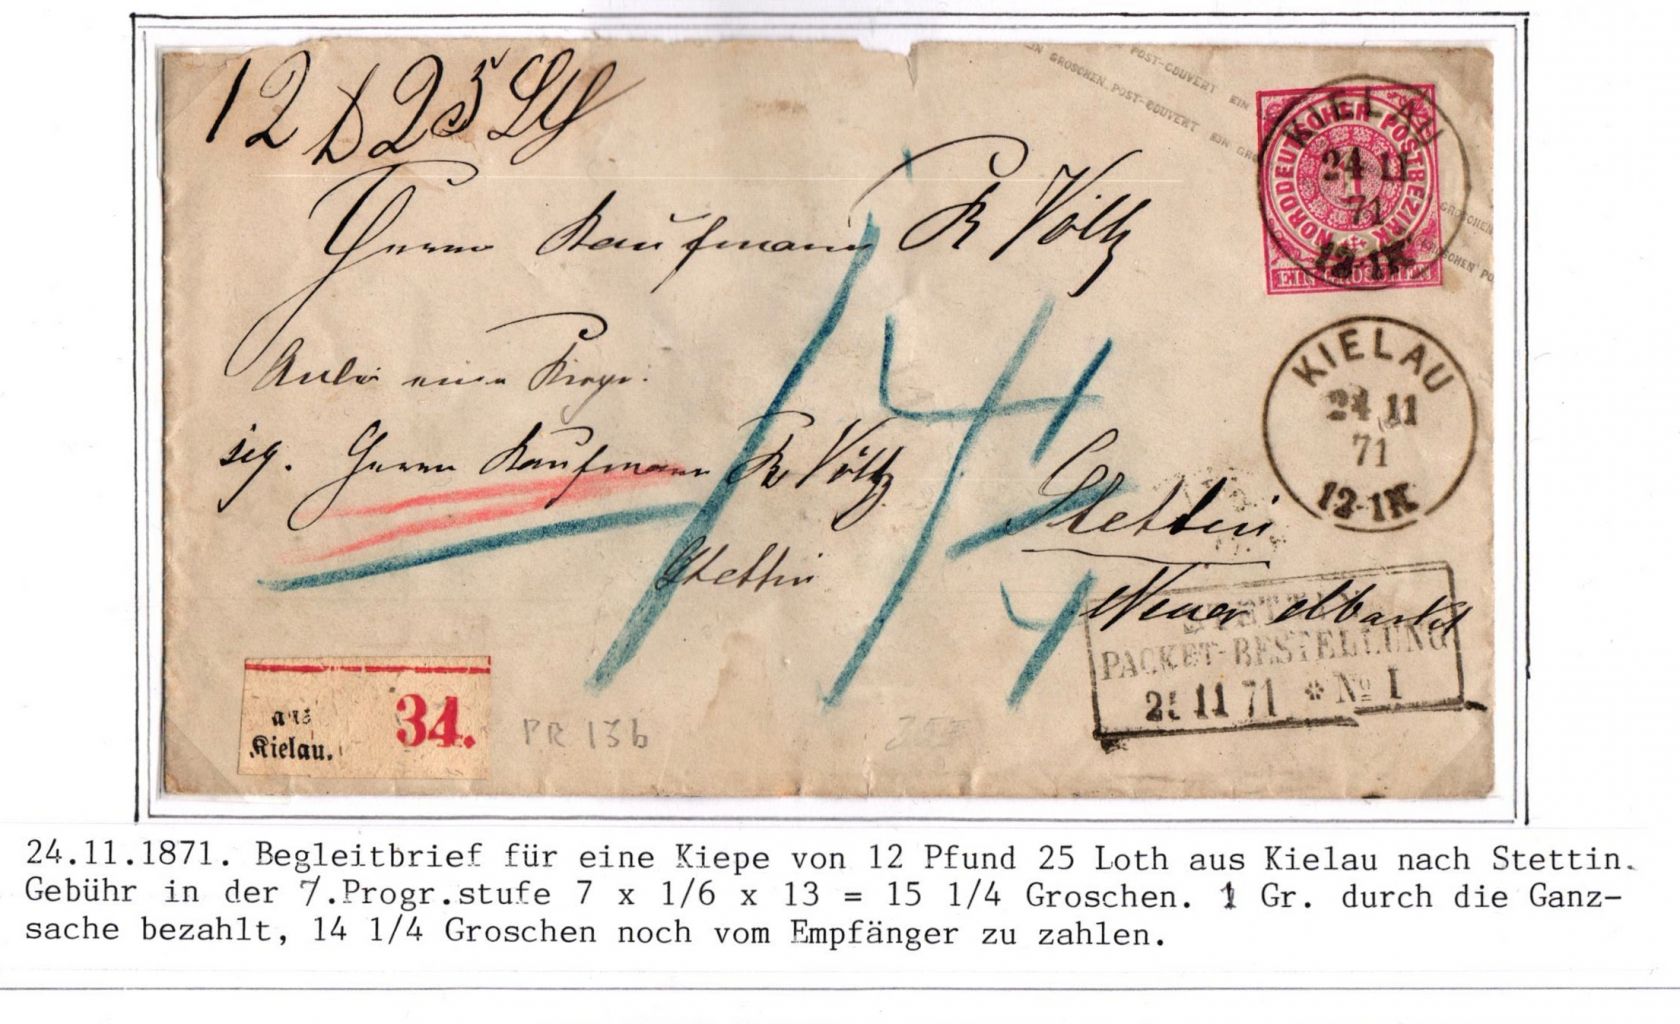 12 ℔ 25 Lth
EIN GROSCHEN POST-COUVERT EIN GROSCHEN POST-COUVERT
NORDDEUTSCHER POSTBEZIRK
1
EIN GROSCHEN
KIELAU
24 11
71
12-1N
Herrn Kaufmann R Völtz
Anbei eine Kiepe.
sig. Herrn Kaufmann R Völtz
Stettin
14 1/4
KIELAU
24 11
71
12-1N
Stettin
Neuer Markt
STETTIN
PACKET-BESTELLUNG
25 11 71 * No I
aus
Kielau.
34.
PR 13b
24.11.1871. Begleitbrief für eine Kiepe von 12 Pfund 25 Loth aus Kielau nach Stettin.
Gebühr in der 7.Progr.stufe 7 x 1/6 x 13 = 15 1/4 Groschen. 1 Gr. durch die Ganz-
sache bezahlt, 14 1/4 Groschen noch vom Empfänger zu zahlen.